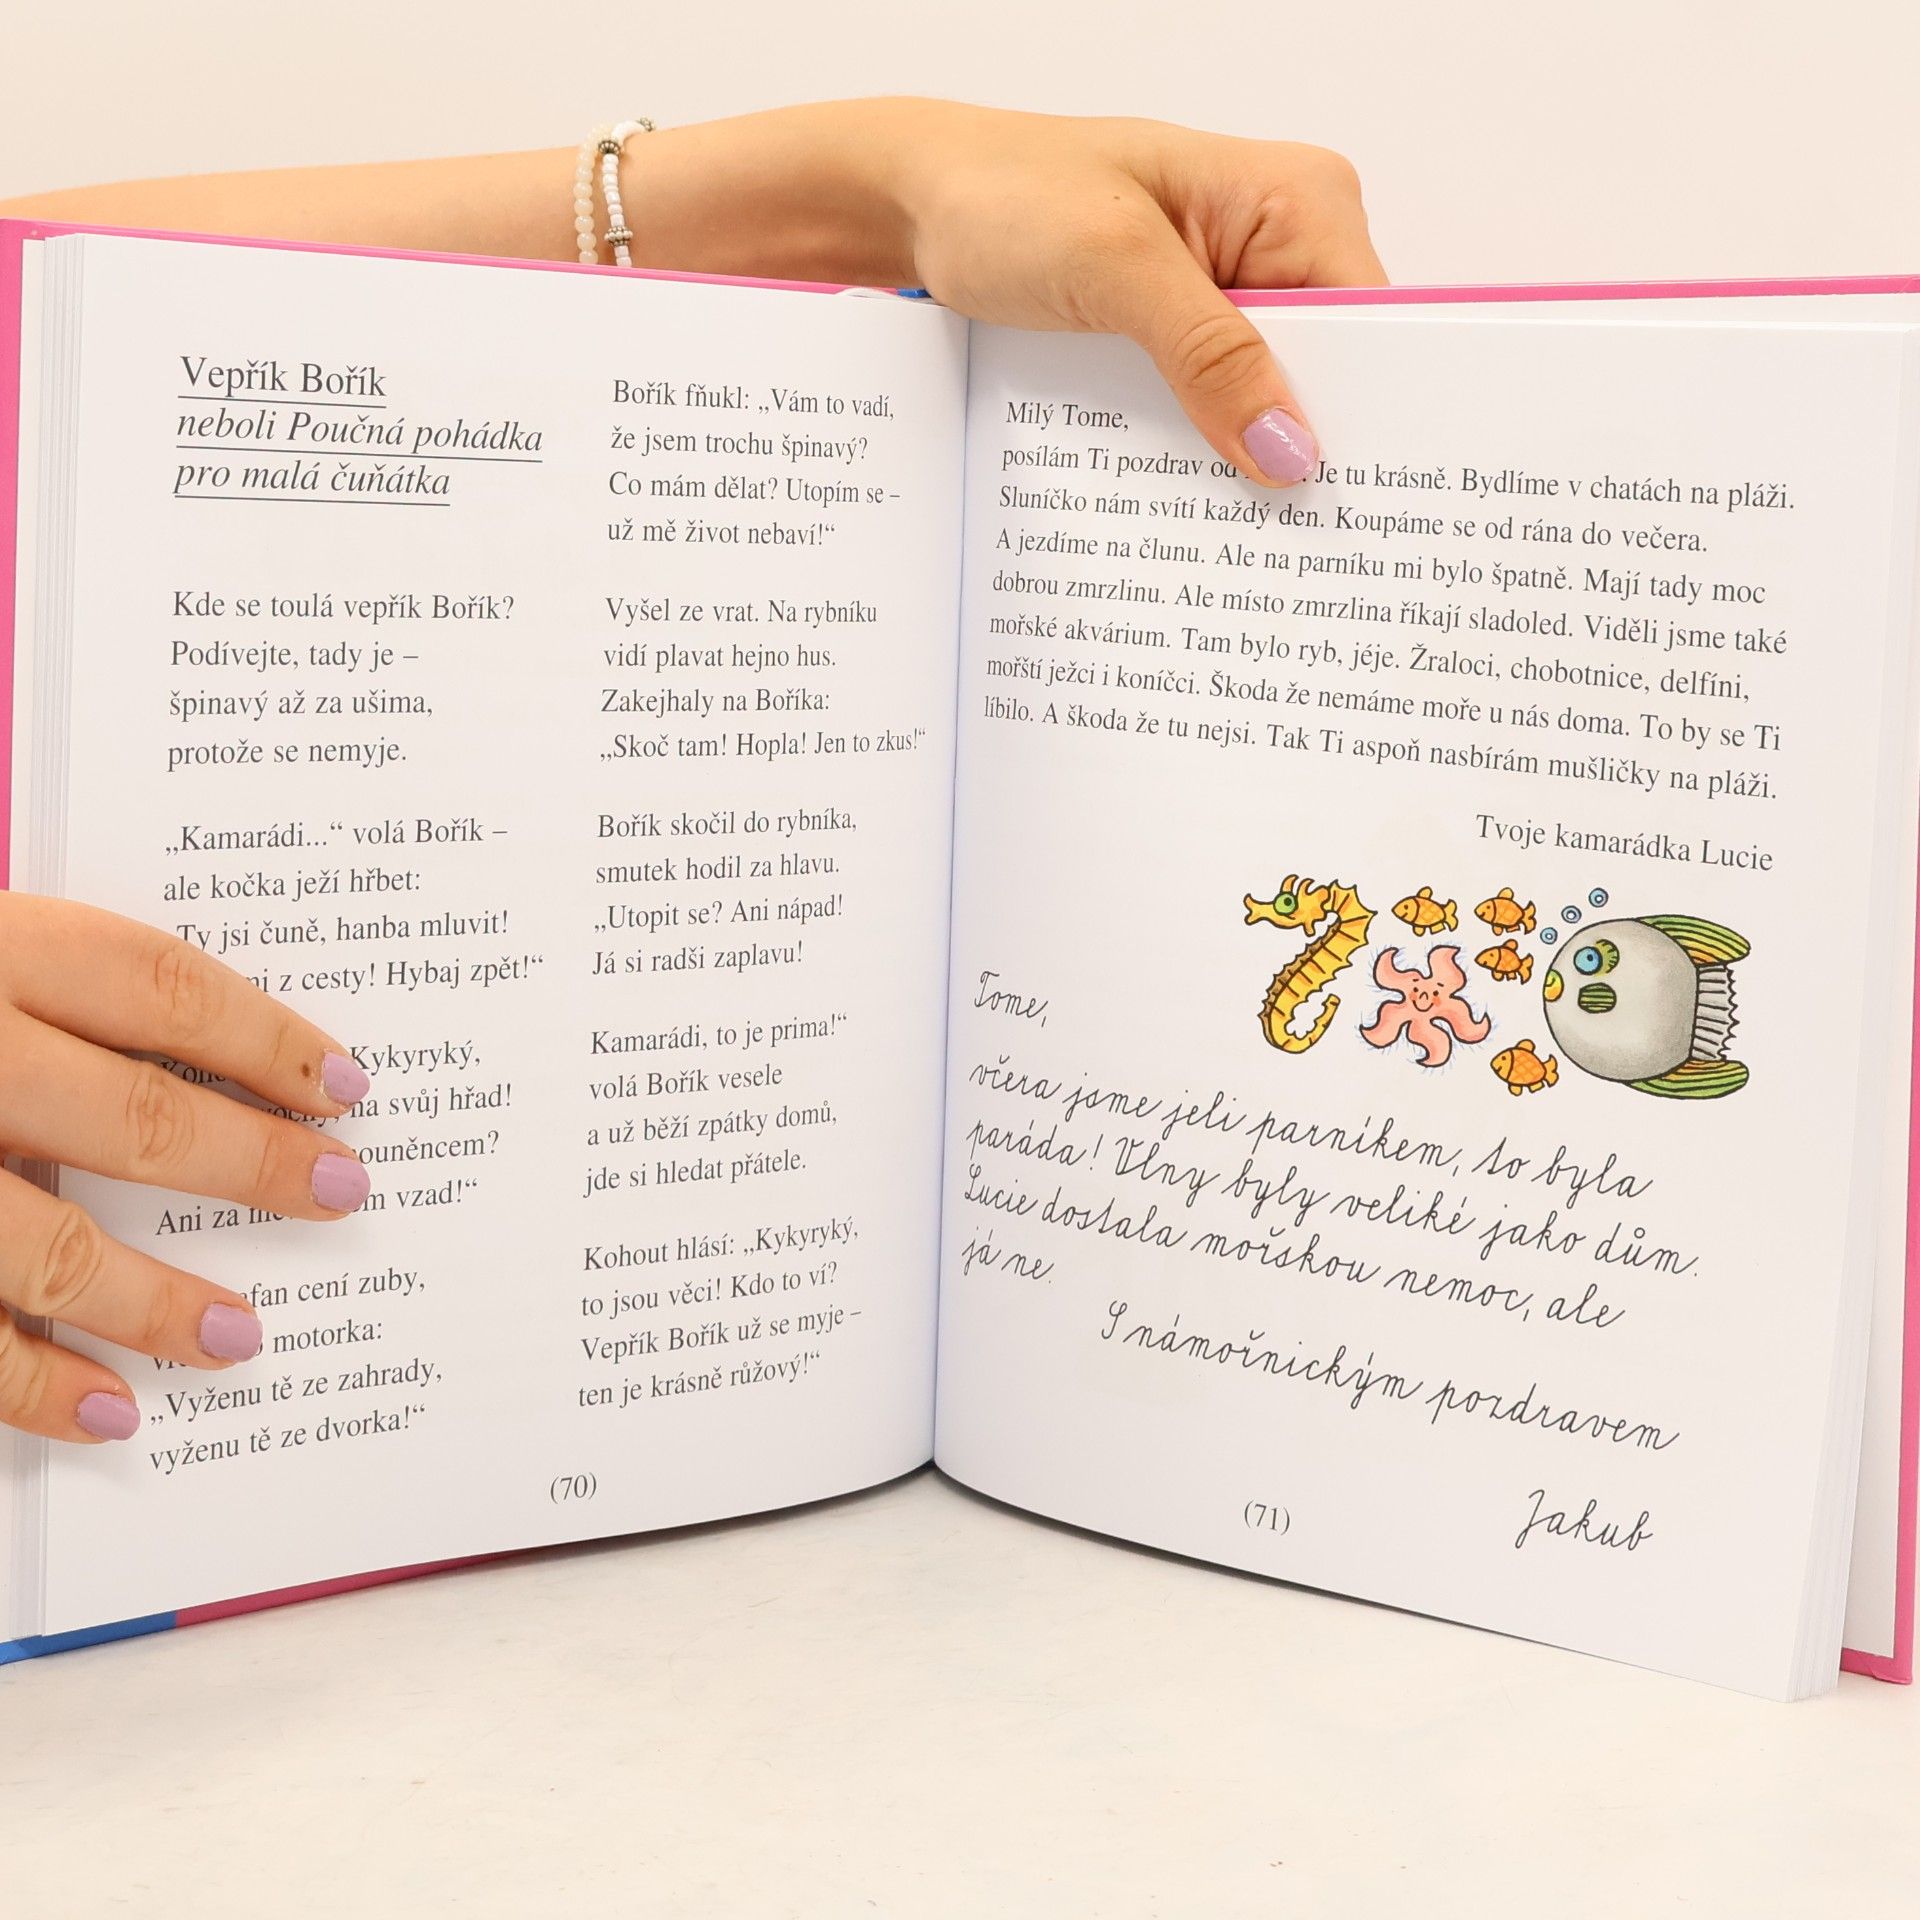 Vepřík Bořík
neboli Poučná pohádka
pro malá čuňátka
Kde se toulá vepřík Bořík?
Podívejte, tady je –
špinavý až za ušima,
protože se nemyje.
„Kamarádi...“ volá Bořík –
ale kočka ježí hřbet:
„Ty jsi čuně, hanba mluvit!
z cesty! Hybaj zpět!“
Kykyryký,
na svůj hřad!
Ani za vzad!“
cení zuby,
motorka:
„Vyženu tě ze zahrady,
vyženu tě ze dvorka!“
Bořík fňukl: „Vám to vadí,
že jsem trochu špinavý?
Co mám dělat? Utopím se –
už mě život nebaví!“
Vyšel ze vrat. Na rybníku
vidí plavat hejno hus.
Zakejhaly na Boříka:
„Skoč tam! Hopla! Jen to zkus!“
Bořík skočil do rybníka,
smutek hodil za hlavu.
„Utopit se? Ani nápad!
Já si radši zaplavu!
Kamarádi, to je prima!“
volá Bořík vesele
a už běží zpátky domů,
jde si hledat přátele.
Kohout hlásí: „Kykyryký,
to jsou věci! Kdo to ví?
Vepřík Bořík už se myje –
ten je krásně růžový!“
(70)
Milý Tome,
posílám Ti pozdrav od Je tu krásně. Bydlíme v chatách na pláži.
Sluníčko nám svítí každý den. Koupáme se od rána do večera.
A jezdíme na člunu. Ale na parníku mi bylo špatně. Mají tady moc
dobrou zmrzlinu. Ale místo zmrzlina říkají sladoled. Viděli jsme také
mořské akvárium. Tam bylo ryb, jéje. Žraloci, chobotnice, delfíni,
mořští ježci i koníčci. Škoda že nemáme moře u nás doma. To by se Ti
líbilo. A škoda že tu nejsi. Tak Ti aspoň nasbírám mušličky na pláži.
Tvoje kamarádka Lucie
Tome,
včera jsme jeli parníkem, to byla
paráda! Vlny byly veliké jako dům.
Lucie dostala mořskou nemoc, ale
já ne.
S námořnickým pozdravem
Jakub
(71)